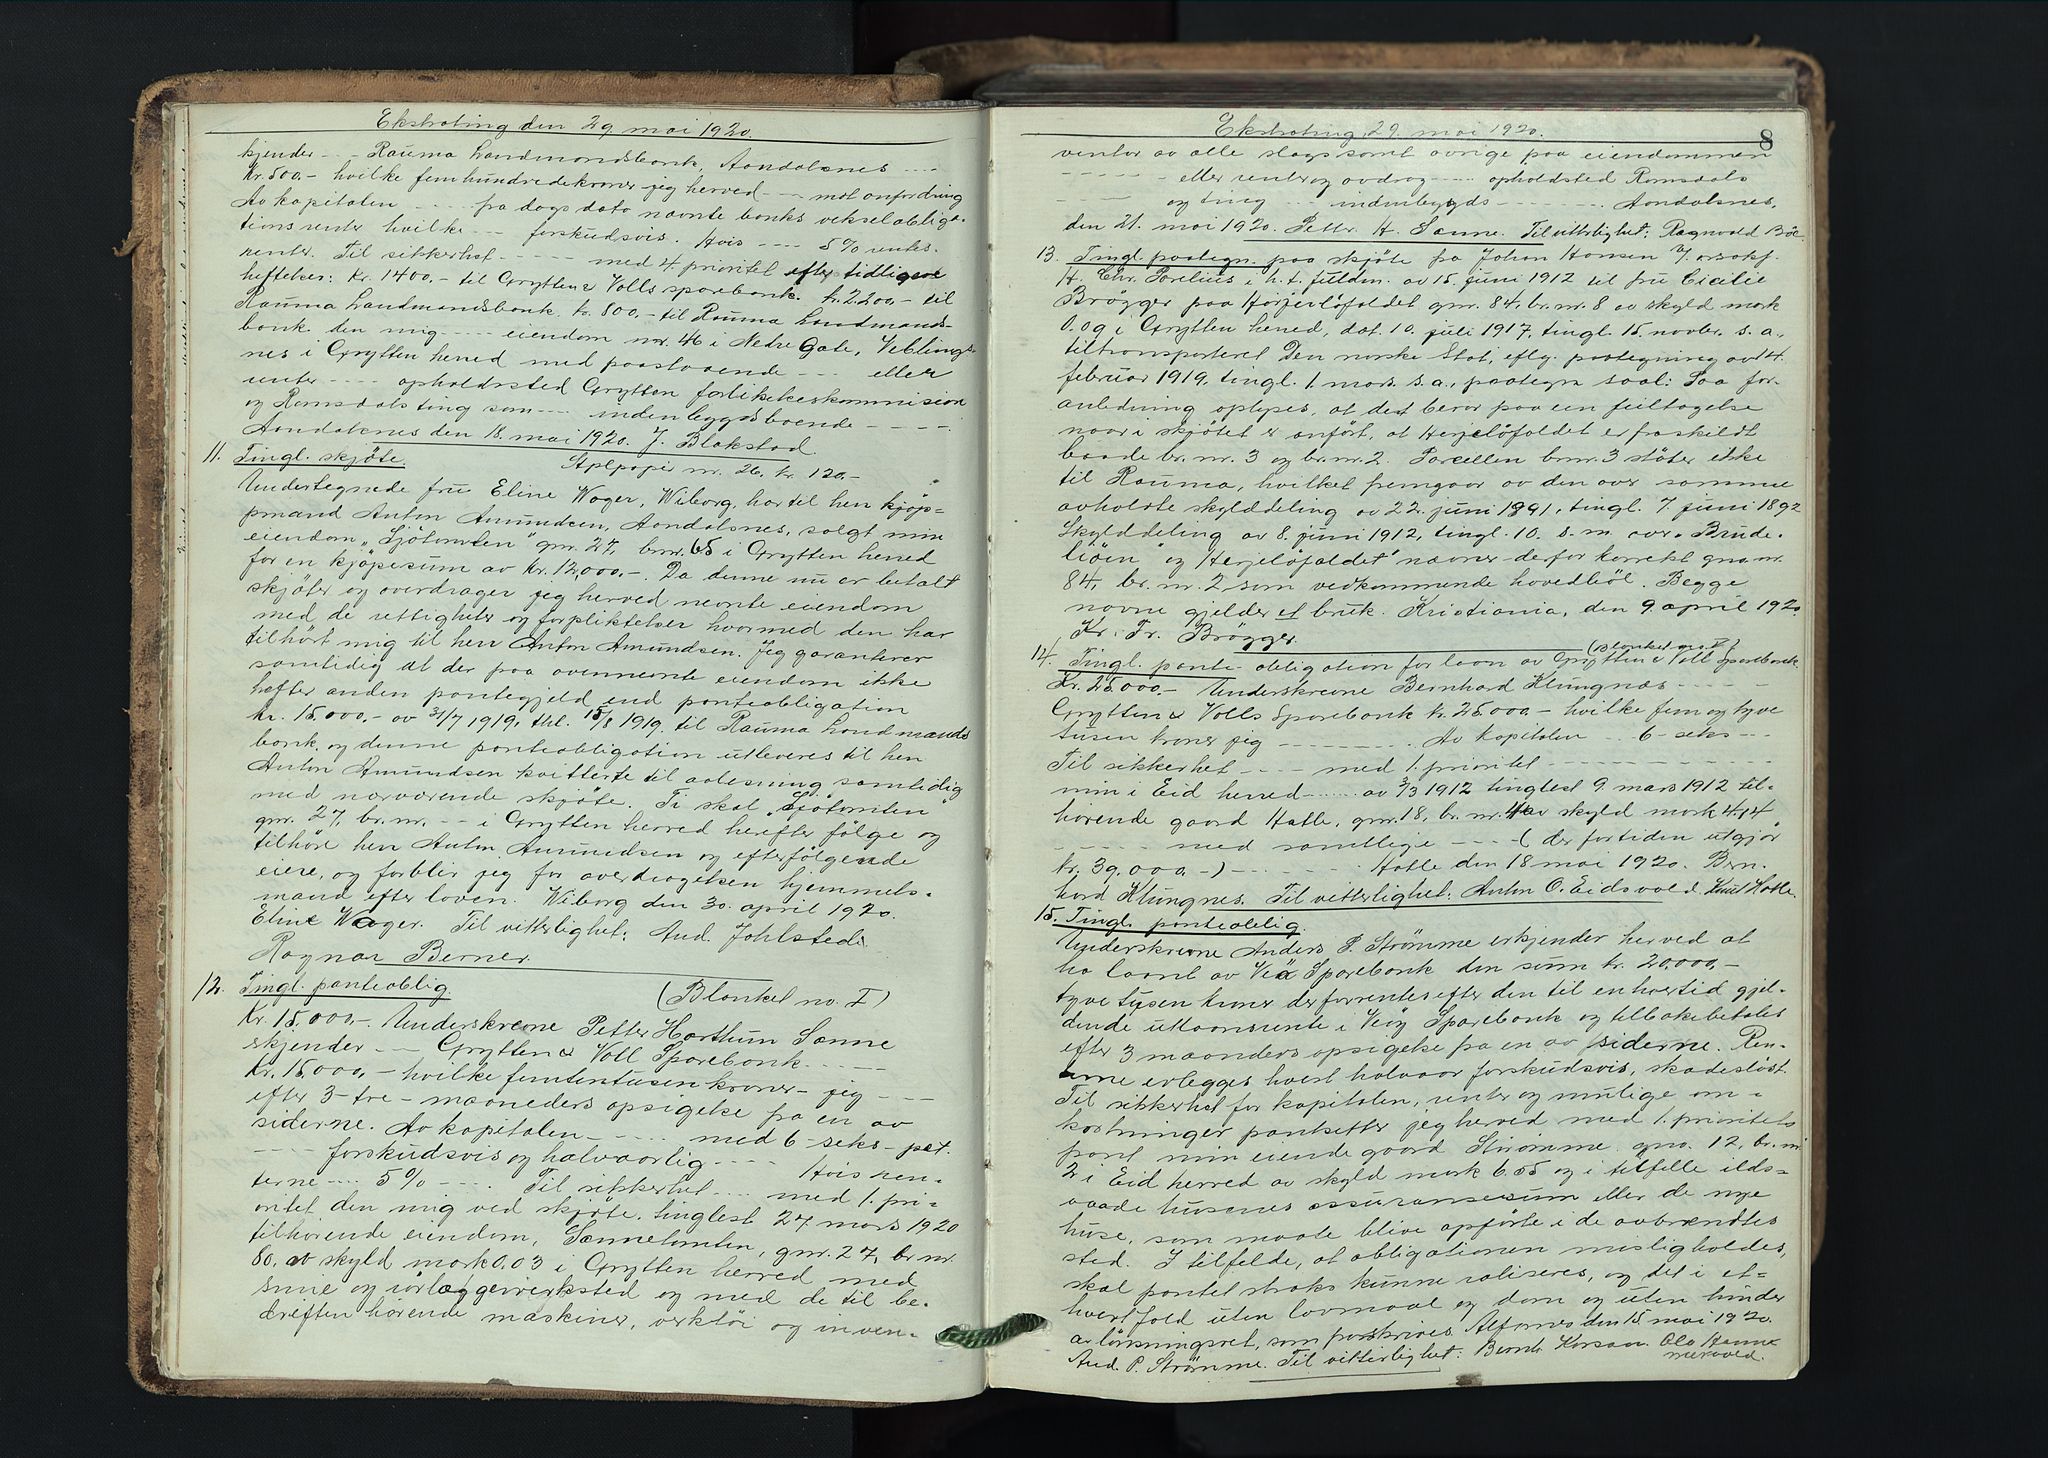 Ekstrating den 29. mai 1920.
kjender --- Rauma Landmandsbank, Aandalsnes ---
Kr. 500,- hvilke femhundredekroner jeg herved --- mot anfordring
Av kapitalen ---- fra dags dato nævnte banks vekselobliga-
tionsrenter hvilke --- forskudsvis. Hvis ---- 5% rentes-
renter. Til sikkerhet ----- med 4. prioritet efter tidligere
heftelser: Kr. 1400.- til Grytten & Volls sparebank. kr. 2200,- til
Rauma Landmandsbank, kr. 800,- til Rauma Landmands-
bank den mig ---- eiendom nr. 46 i Nedre Gate, Veblungs-
nes i Grytten herred med paastaaende --- eller
renter ---- opholdssted Grytten forlikelseskommision
og Romsdals ting som ---- indenbygdsboende -----
Aandalsnes den 18. mai 1920. J. Blakstad.
11. Tingl. skjöte. Stplpapir nr. 26. kr. 120.-
Undertegnede fru Eline Wager, Wiborg, har til herr kjöp=
mand Anton Amundsen, Aandalsnes, solgt min
eiendom „Sjötomten" gnr. 27, bnr. 65 i Grytten herred
for en kjöpesum av Kr. 12,000.-. Da denne nu er betalt
skjöter og overdrager jeg herved nevnte eiendom
med de rettigheter og forpliktelser hvormed den har
tilhört mig til herr Anton Amundsen. Jeg garanterer
samtidig at der paa ovennevnte eiendom ikke
hefter anden pantegjeld end panteobligation
kr. 15.000,- av 31/7 1919, thl. 15/8 1919 til Rauma Landmands
bank, og denne panteobligation utleveres til herr
Anton Amundsen kvitterte til avlesning samtidig
med nærværende skjöte. Ti skal „Sjötomten"
gnr. 27, br. nr. -- i Grytten herred herefter fölge og
tilhöre herr Anton Amundsen og efterfölgende
eiere, og forblir jeg for overdragelsen hjemmels-
mand efter loven. Wiborg den 30. april 1920.
Eline Wager. Til vitterlighet: And. Johlstede
Ragnar Berner.
12. Tingl. panteoblig. (Blanket no. I)
Kr. 15.000,-. Underskrevne Petter Harthum Sanne
erkjender -- Grytten & Voll Sparebank -----
Kr. 15.000,- hvilke femtentusen kroner - jeg ---
efter 3-tre - maaneders opsigelse fra en av
siderne. Av kapitalen ----- med 6-seks- pct.
---- forskudsvis og halvaarlig ---- Hvis ren-
terne ---- 5% ---- Til sikkerhet --- med 1. pri-
oritet den mig ved skjöte, tinglest 27 mars 1920
tilhörende eiendom, Sannetomten, gnr. 27, br. nr.
80, av skyld mark 0,03 i Grytten herred med
smie og rörlæggerverksted og med de til be-
driften hörende maskiner, verktöi og inven-
Ekstrating 29. mai 1920.
8
ventar av alle slags samt övrige paa eiendommen
----- eller renter og avdrag ---- opholdsted Romsdals
--- og ting --- indenbygds ------- Aandalsnes,
den 21. mai 1920. Petter H. Sanne. Til vitterlighet: Ragnvald Böe.
13. Tingl. paategn. paa skjöte fra Johan Hansen v/ orsakf.
H. Chr. Forelius, h. t. fuldm. av 15. juni 1912 til fru Cicilie
Brögger paa Herjelöfaldet gnr. 84, br. nr. 8 av skyld mark
0.09 i Grytten herred, dat. 10. juli 1917, tingl. 15 novbr. s. a.,
tiltransporteret Den norske Stat, eflg. paategning av 14.
februar 1919, tingl. 1. mars. s. a., paategn saal: Paa for-
anledning oplyses, at det beror paa en feiltagelse
naar i skjötet er anfört, at Herjelöfaldet er fraskildt
baade br. nr. 3 og br. nr. 2. Parcellen bnr. 3 stöter ikke
til Rauma, hvilket fremgaar av den over samme
avholdte skylddeling av 22. juni 1891, tingl. 7. juni 1892
Skylddeling av 8. juni 1912, tingl. 10. s. m. over „Brude-
liöen" og Herjelöfaldet" nævner derfor korrekt gno. nr.
84, br. nr. 2 som vedkommende hovedböl. Begge
navne gjelder et bruk. Kristiania, den 9. april 1920.
Kr. Fr. Brögger.
14. Tingl. pante-obligation for laan av Grytten & Voll Sparebank (Blanket no. I)
Kr. 25.000.- Underskrevne Bernhard Klungnæs -----
Grytten & Volls Sparebank kr. 25.000,- hvilke fem og tyve
tusen kroner jeg -------- Av kapitalen --- 6-seks---
Til sikkerhet ---- med 1. prioritet ----------
min i Eid herred ------ av 2/3 1912 tinglest 9. mars 1912 til-
hörende gaard Hatle, gnr. 18, br. nr. 4 av skyld mark 4,14
----- med samtlige ---- ( der fortiden utgjör
kr. 39,000.-) ------- Hatle den 18 mai 1920. Bern-
hard Klungnes. Til vitterlighet: Anton O. Eidsvold. Knut Hatle.
15. Tingl. panteoblig.
Underskrevne Anders P. Strömme erkjender herved at
ha laant av Veö Sparebank den sum kr. 20,000,-
tyve tusen kroner der forrentes efter den til enhver tid gjel-
dende utlaansrente i Veöy Sparebank og tilbakebetales
efter 3 maanders opsigelse fra en av siderne. Ren-
terne erlegges hvert halvaar forskudsvis, skadeslöst.
Til sikkerhet for kapitalen, renter og mulige om-
kostninger pantsetter jeg herved med 1. prioritets
pant min eiende gaard Strömme gno. 12, br. nr.
2 i Eid herred av skyld mark 6.55 og i tilfelle ilds-
vaade husenes assuransesum eller de nye
huse, som maatte blive opförte i de avbrændtes
sted. I tilfelde, at obligationen misligholdes,
skal pantet straks kunne realiseres, og det i et-
hvert fald uten lovmaal og dom og uten hinder
av lösningsret, som forskrives. Alfarnes den 15 mai 1920.
And. P. Strömme. Til vitterlighet: Bernh. Korsan. Ole Hanne
mersvold.